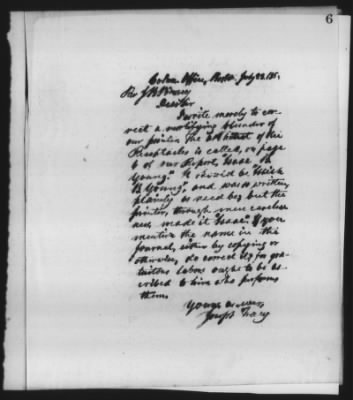 6
Colon. Office, Boston, July 22, 185
Rev J B Pinney
Dear Sir
I write merely to cor-
rect a mortifying blunder of
our printer. The architect of the
Receptacles is called, on page
6 of our Report, "Isaac B
Young." It should be "Ulrick
B Young", and was so written,
plainly as need be; but the
printer, through mere careless-
ness, made it "Isaac." If you
mention the name in the
Journal, either by copying or
otherwise, do correct it; for gra-
tuitous labor ought to be as-
cribed to him who performs
them.
Yours as ever,
Joseph Tracy